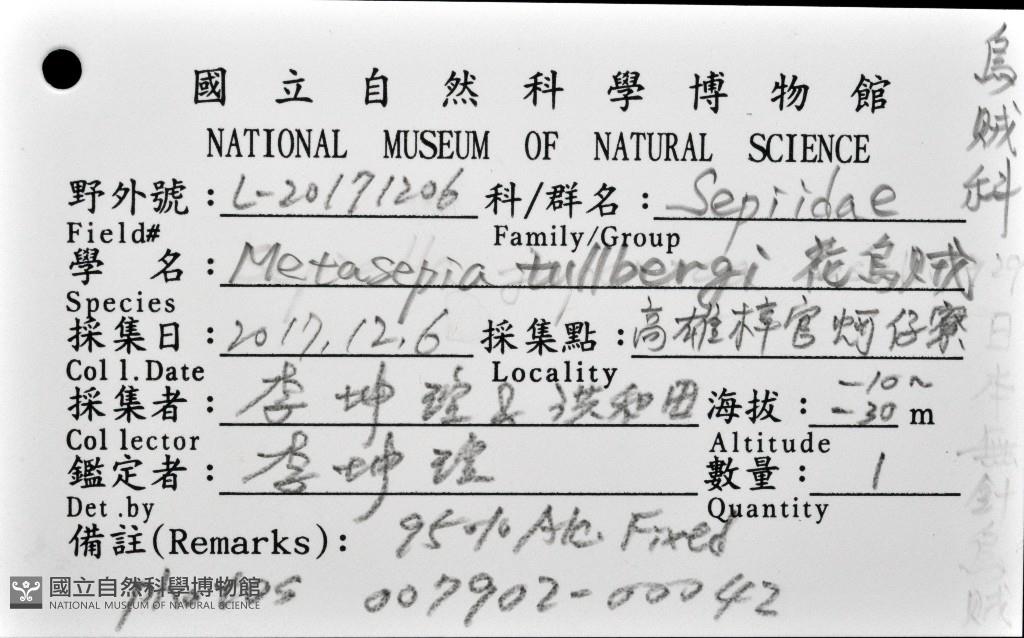 國立自然科學博物館
NATIONAL MUSEUM OF NATURAL SCIENCE
野外號：L-20171206 科/群名：Sepiidae
Field# Family/Group
學名：Metasepia tullbergi 花烏賊
Species
採集日：2017.12.6 採集點：高雄梓官蚵仔寮
Coll.Date Locality
採集者：李坤瑄& 洪和田 海拔：-10~-30 m
Collector Altitude
鑑定者：李坤瑄 數量：1
Det.by Quantity
備註(Remarks)： 95% Alc. Fixed
photos 007902-00042
烏賊科
日本無針烏賊
國立自然科學博物館
NATIONAL MUSEUM OF NATURAL SCIENCE